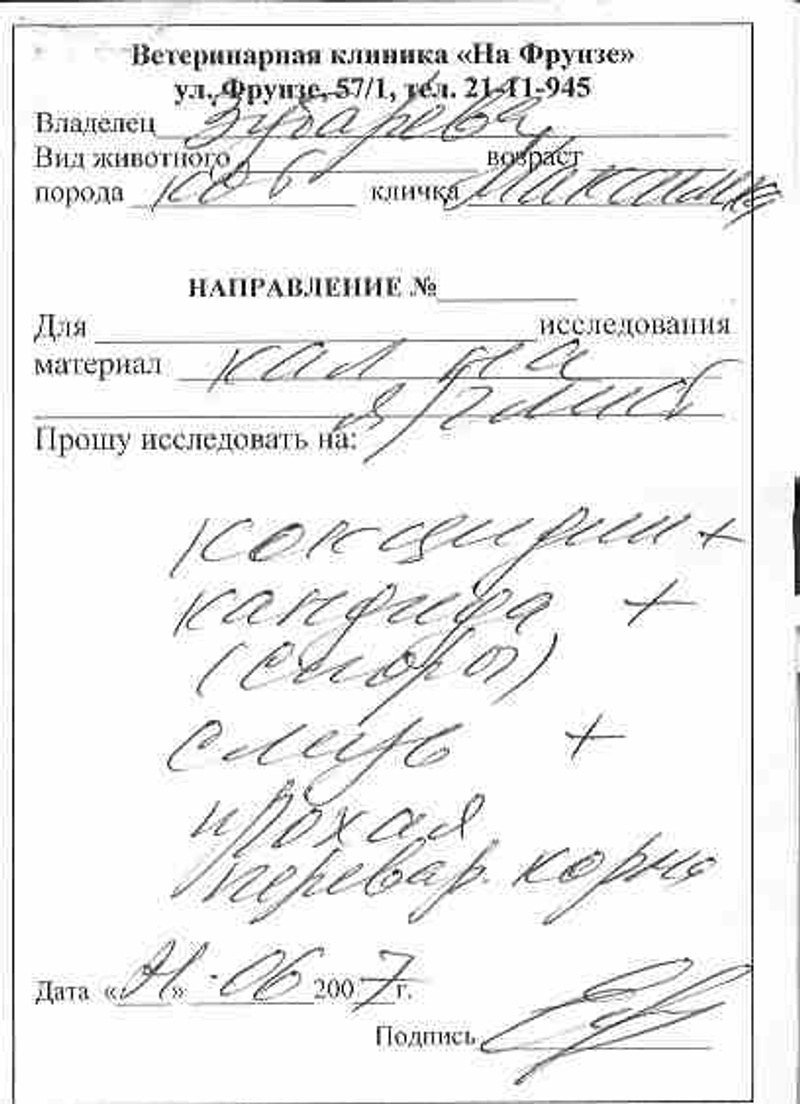 Ветеринарная клиника «На Фрунзе»
ул. Фрунзе, 57/1, тел. 21-11-945
Владелец Зубарева
Вид животного возраст
порода кличка Максимка
НАПРАВЛЕНИЕ №
Для исследования
материал кал на
я/глист
Прошу исследовать на:
кокцидии +
кандида +
(споры)
слизь +
плохая
перевар. корма
Дата « » 06 2007 г.
Подпись